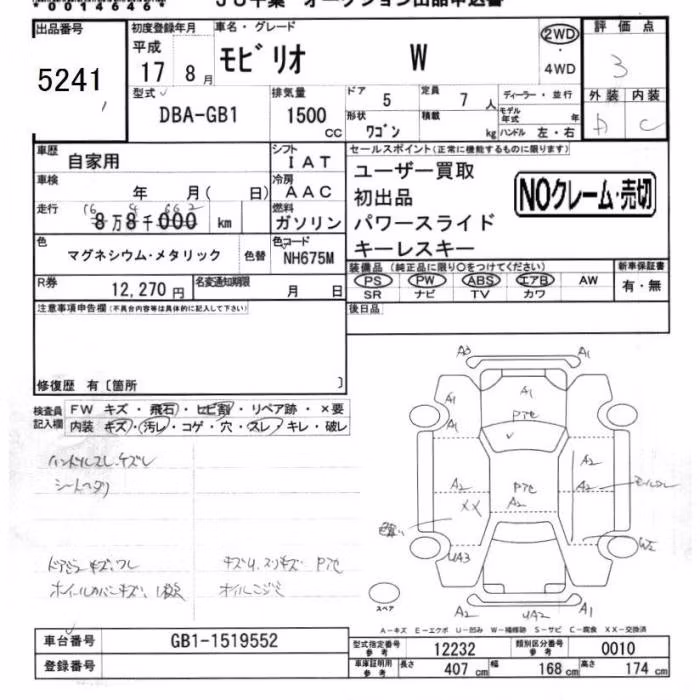 00014646
JU千葉 オークション出品申込書
出品番号 初度登録年月 車名・グレード 2WD 評価点
5241 平成 17 8月 モビリオ W ・ 4WD 3
型式 排気量 ドア 5 定員 7人 ディーラー・並行 外装 内装
DBA-GB1 1500 cc 形状 ワゴン 積載 kg モデル年式 年 ハンドル 左・右 D C
車歴 自家用 シフト IAT セールスポイント(正常に機能するものに限ります)
車検 年 月( 日) 冷房 AAC ユーザー買取
初出品
NOクレーム・売切
走行 8万8千000 km 燃料 ガソリン パワースライド
16 4 662
色 マグネシウム・メタリック 色替 色コード NH675M キーレスキー
R券 12,270円 名変通知期限 月 日 装備品(純正品に限り○をつけてください) 新車保証書
PS PW ABS エアB AW 有・無
SR ナビ TV カワ
注意事項申告欄(不具合内容等は具体的に記入して下さい) 後日品
修復歴 有〔箇所 〕
検査員記入欄 FW キズ・飛石・ヒビ割・リペア跡・×要
内装 キズ・汚レ・コゲ・穴・スレ・キレ・破レ
ハンドルスレ、ケズレ
シートヘタリ
A3 A1
A1 A1
A1 Pアセ
A2 A2 Pアセ A2
A2 A2
XX
UA3 W2
スペア
A2 UA2 A1
A-キズ E-エクボ U-凹み W-補修跡 S-サビ C-腐食 XX-交換済
車台番号 GB1-1519552 型式指定番号 参考 12232 類別区分番号 参考 0010
登録番号 車庫証明用 参考 長さ 407cm 幅 168cm 高さ 174cm